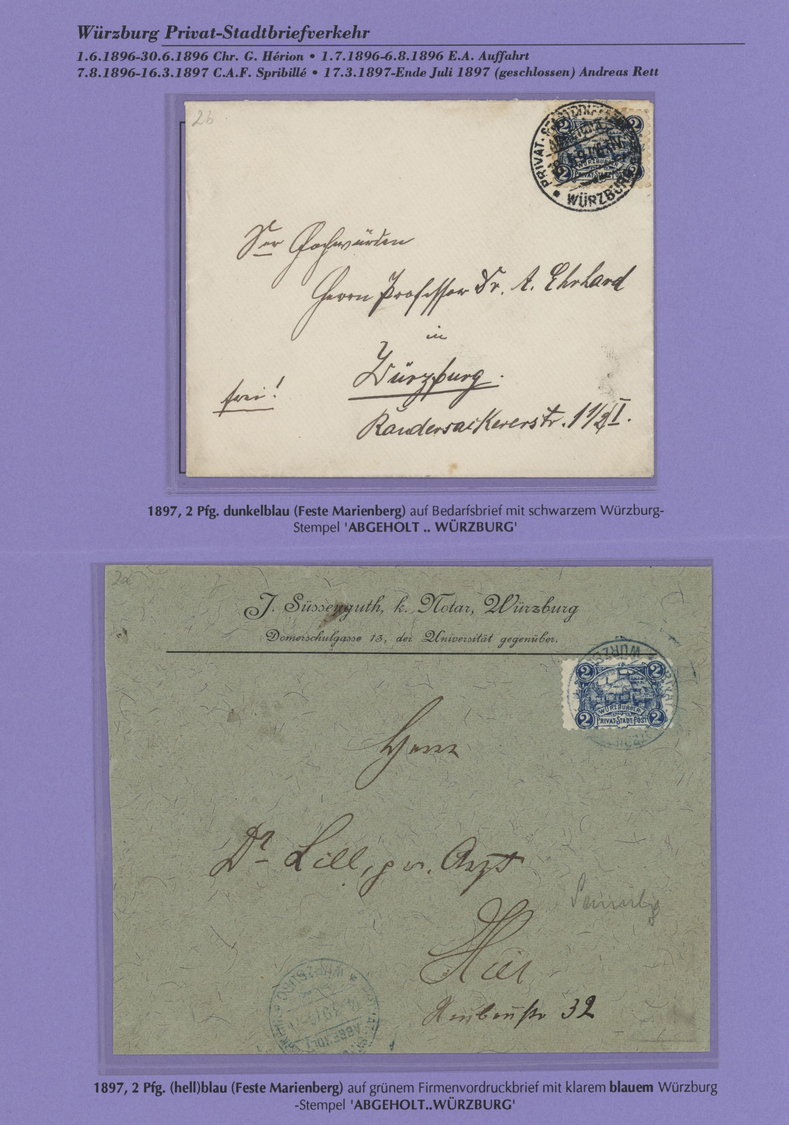 Würzburg Privat-Stadtbriefverkehr
1.6.1896-30.6.1896 Chr. G. Hérion • 1.7.1896-6.8.1896 E.A. Auffahrt
7.8.1896-16.3.1897 C.A.F. Spribillé • 17.3.1897-Ende Juli 1897 (geschlossen) Andreas Rett
2b
2 2
2 2
PRIVAT-
WÜRZBURG
Sr Hochwürden
Herrn Professor Dr. A. Ehrhard
in
Würzburg.
frei!
Randersackererstr. 11/2 I.
1897, 2 Pfg. dunkelblau (Feste Marienberg) auf Bedarfsbrief mit schwarzem Würzburg-
Stempel 'ABGEHOLT .. WÜRZBURG'
2a
J. Süssenguth, k. Notar, Würzburg
Domerschulgasse 13, der Universität gegenüber.
2 2
WÜRZBURGER
2 PRIVAT-STADT-POST 2
Herrn
Dr Lill, pr. Arzt
Hier
32
1897, 2 Pfg. (hell)blau (Feste Marienberg) auf grünem Firmenvordruckbrief mit klarem blauem Würzburg
-Stempel 'ABGEHOLT..WÜRZBURG'